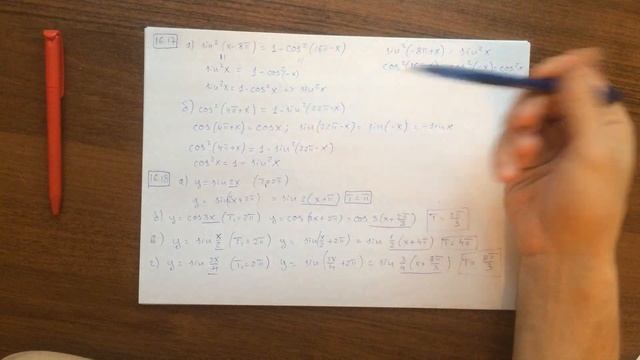 16.17 а) sin²(x-8π) = 1-cos²(16π-x) sin²(-8π+x) = sin²x
sin²x = 1-cos²(-x) cos²(16π-x) = cos²(-x) = cos²x
sin²x = 1-cos²x => sin²x
б) cos²(4π+x) = 1-sin²(22π-x)
cos(4π+x) = cosx; sin(22π-x) = sin(-x) = -sinx
cos²(4π+x) = 1-sin²(22π-x)
cos²x = 1-sin²x
16.18 а) y = sin2x (T₁=2π)
y = sin(2x+2π) = sin 2(x+π) T=π
б) y = cos3x (T₁=2π) y = cos(3x+2π) = cos 3(x+2π/3) T=2π/3
в) y = sin x/2 (T₁=2π) y = sin(x/2+2π) = sin 1/2(x+4π) T=4π
г) y = sin 3x/4 (T₁=2π) y = sin(3x/4+2π) = sin 3/4(x+8π/3) T=8π/3